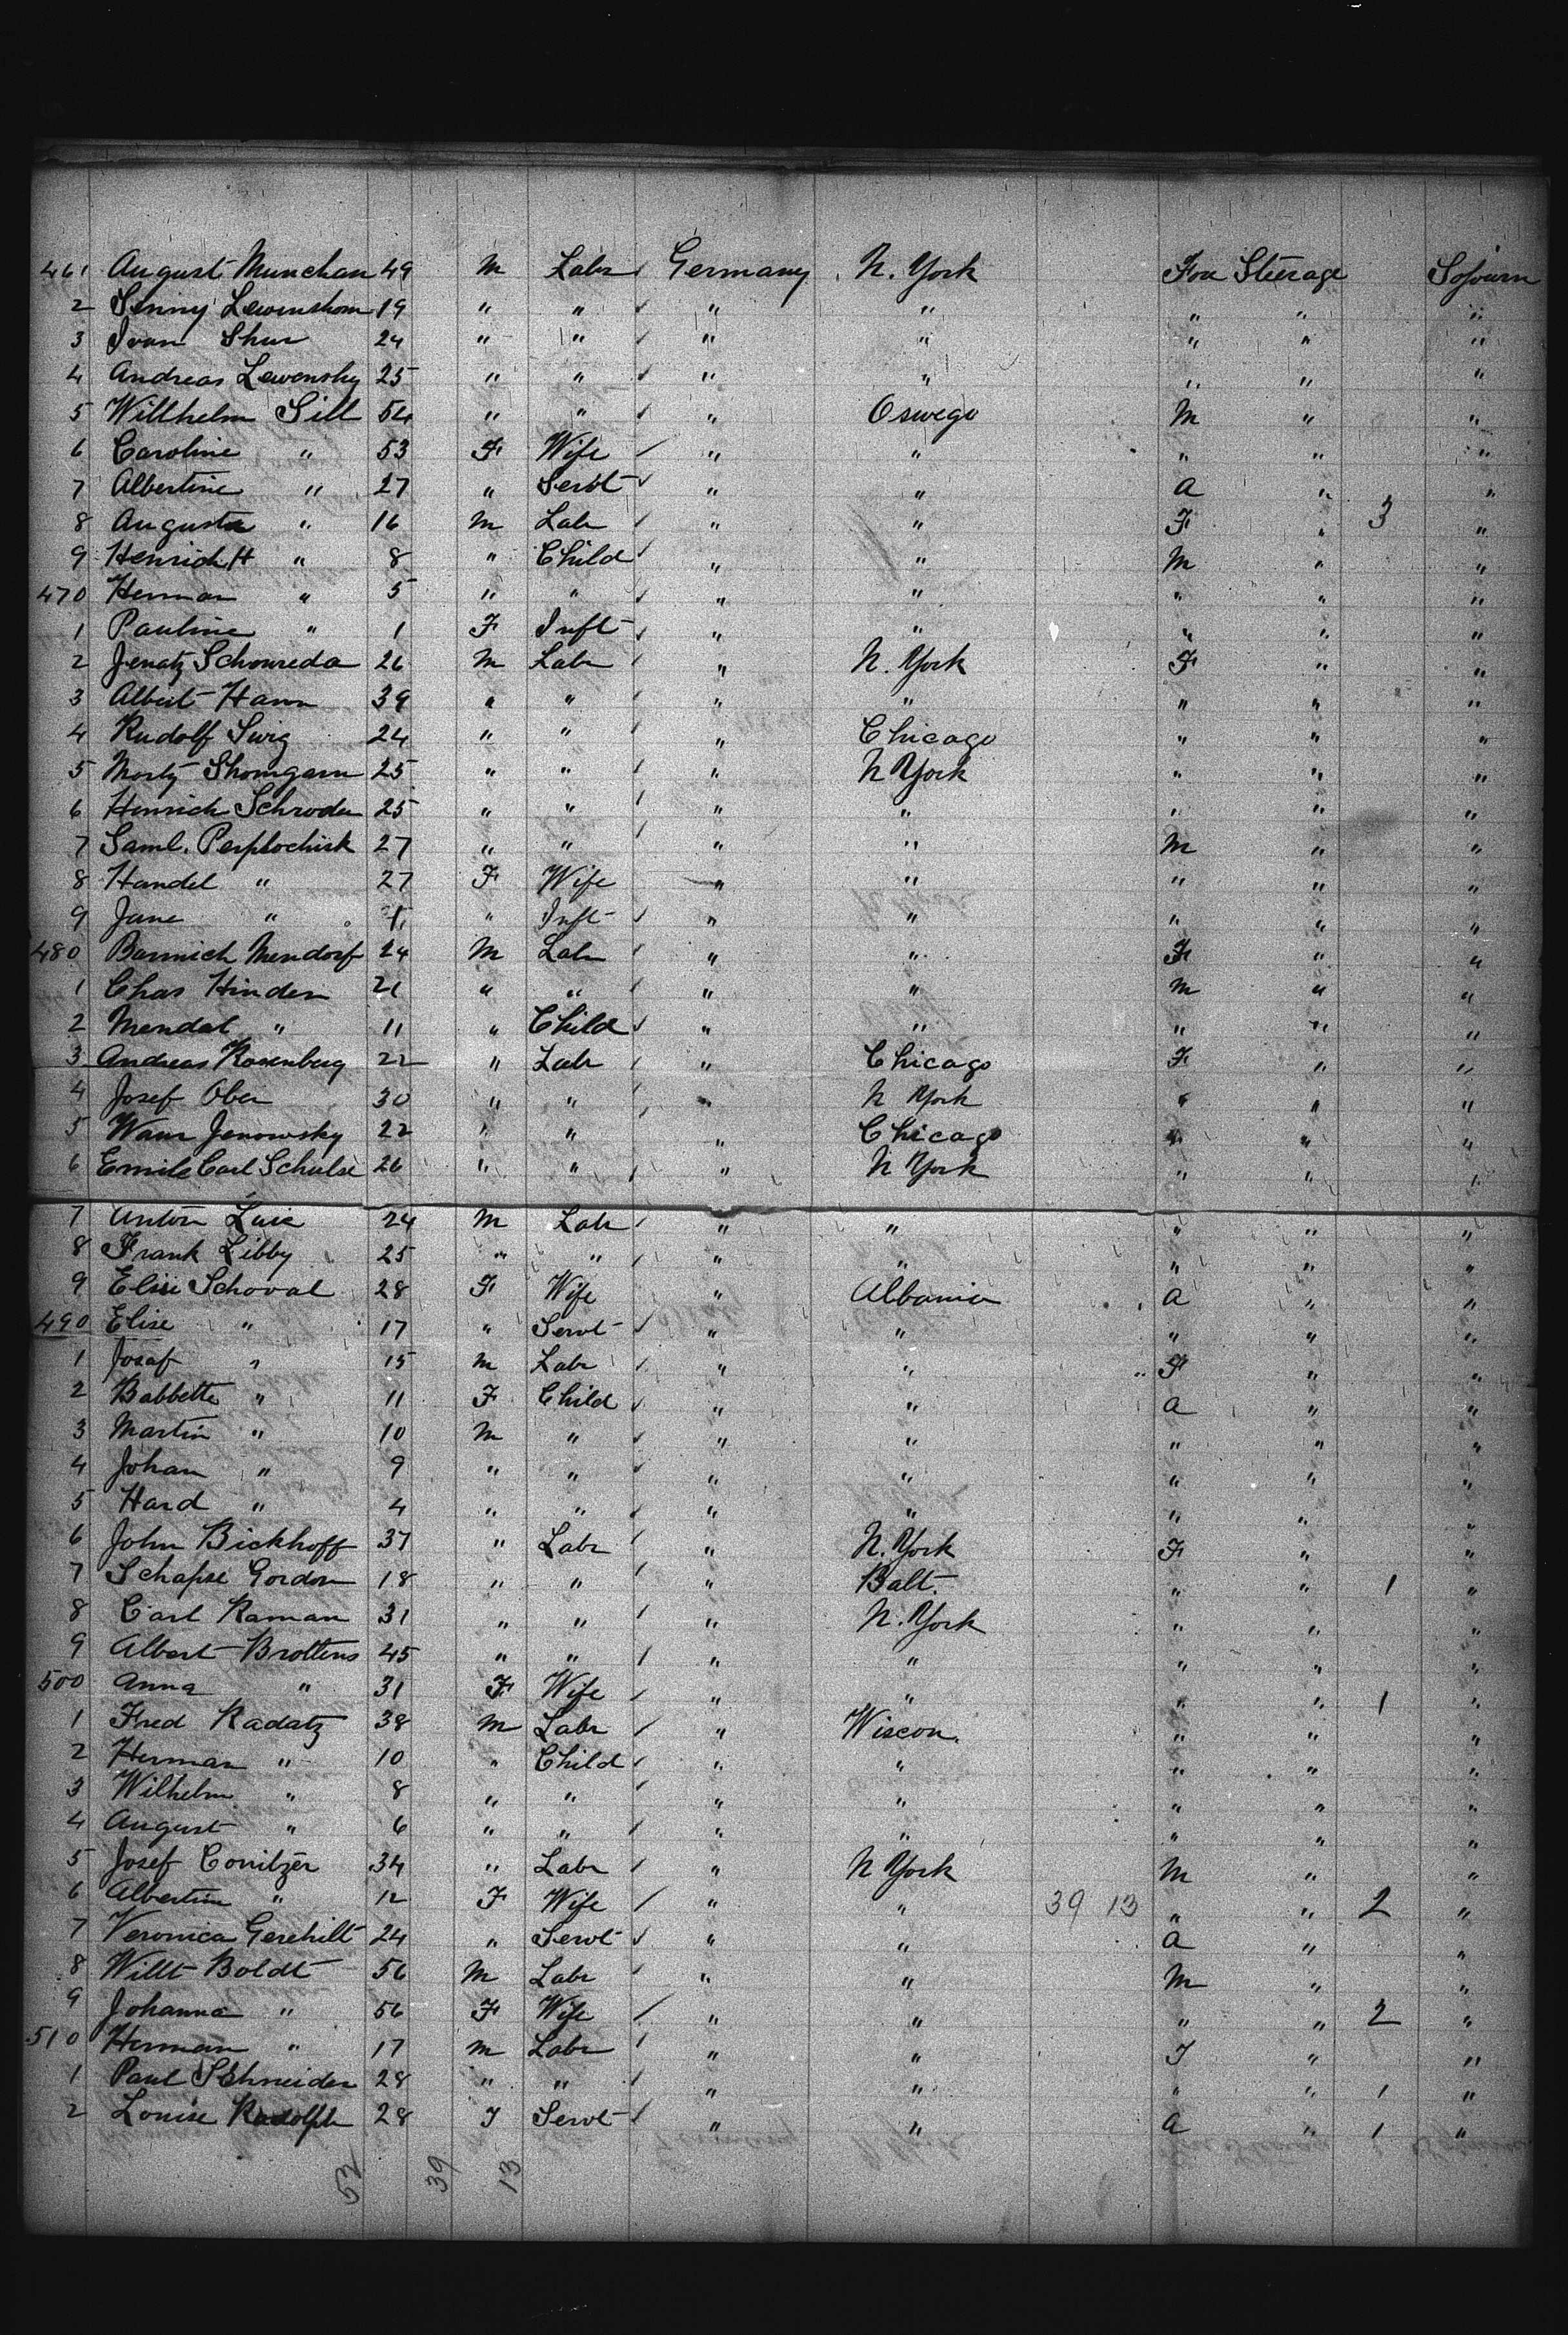 461 August Munchau 49 M Labr Germany N. York For Steerage Sojourn
2 Lewinshom 19 " " " " " " "
3 Ivan Shur 24 " " " " " " "
4 Andreas Lewensky 25 " " " " " " "
5 Willhelm Sill 54 " " " Oswego M " "
6 Caroline " 53 F Wife " " " " "
7 Albertine " 27 " Servt " " a " "
8 Augusta " 16 M Labr " " F " 3 "
9 Henrich H " 8 " Child " " M " "
470 Herman " 5 " " " " " " "
1 Pauline " 1 F Inft " " " " "
2 Jenatz Schoureda 26 M Labr " N. York F " "
3 Albert Hann 39 " " " " " " "
4 Rudolf Swig 24 " " " Chicago " " "
5 Shomgarn 25 " " " N York " " "
6 Henrich Schroder 25 " " " " " " "
7 Saml. 27 " " " " M " "
8 Handel " 27 F Wife " " " " "
9 Jane " 1 " Inft " " " " "
480 Mendorf 24 M Labr " " F " "
1 Chas Hinden 21 " " " " M " "
2 Mendal " 11 " Child " " " " "
3 Andreas Rosenberg 22 " Labr " Chicago F " "
4 Josef Ober 30 " " " N York " " "
5 Jenowsky 22 " " " Chicago " " "
6 Emile Carl Schulse 26 " " " N York " " "
7 Anton 24 M Labr " " " " "
8 Frank Libby 25 " " " " " " "
9 Elise Schoval 28 F Wife " Albania a " "
490 Elise " 17 " Servt " " " " "
1 Josaf " 15 M Labr " " F " "
2 Babbette " 11 F Child " " a " "
3 Martin " 10 M " " " " " "
4 Johan " 9 " " " " " " "
5 Hard " 4 " " " " " " "
6 John Bickhoff 37 " Labr " N. York F " "
7 Schapse Gordon 18 " " " Balt. " " 1 "
8 Carl Raman 31 " " " N. York " " "
9 Albert Brottens 45 " " " " " " "
500 Anna " 31 F Wife " " " " 1 "
1 Fred Radatz 38 M Labr " Wiscon. " " "
2 Herman " 10 " Child " " " " "
3 Wilhelm " 8 " " " " " " "
4 August " 6 " " " " " " "
5 Josef Conitzer 34 " Labr " N York M " "
6 Albertine " 12 F Wife " " 39 13 " " 2 "
7 Veronica Gerehilt 24 " Servt " " a " "
8 Willt Boldt 56 M Labr " " M " "
9 Johanna " 56 F Wife " " " " 2 "
510 Herman " 17 M Labr " " F " "
1 Paul Schneider 28 " " " " " " 1 "
2 Louise Radolph 28 F Servt " " a " 1 "
52 39 13